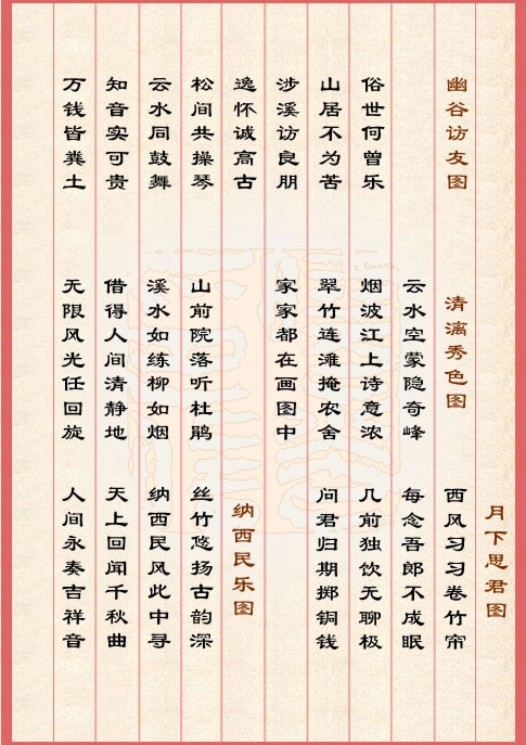 幽谷访友图
俗世何曾乐
山居不为苦
涉溪访良朋
逸怀诚高古
松间共操琴
云水同鼓舞
知音实可贵
万钱皆粪土
清漓秀色图
云水空蒙隐奇峰
烟波江上诗意浓
翠竹连滩掩农舍
家家都在画图中
山前院落听杜鹃
溪水如练柳如烟
借得人间清静地
无限风光任回旋
月下思君图
西风习习卷竹帘
每念吾郎不成眠
几前独饮无聊极
问君归期掷铜钱
纳西民乐图
丝竹悠扬古韵深
纳西民风此中寻
天上回闻千秋曲
人间永奏吉祥音